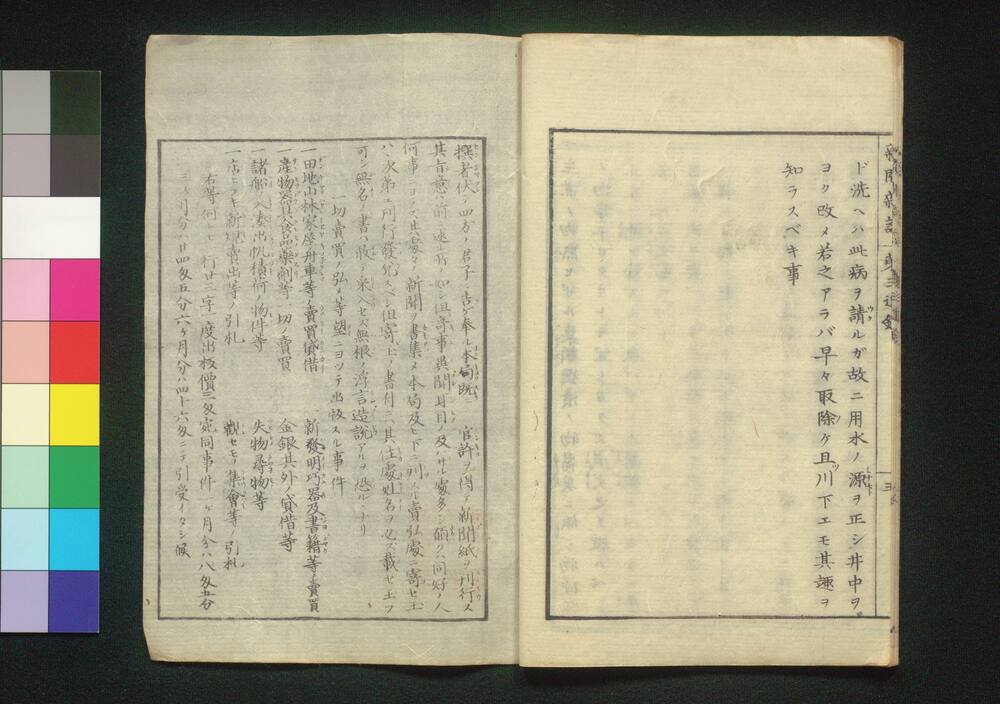 ド洗ヘハ此病ヲ請ルガ故ニ用水ノ源ヲ正シ井中ヲ
ヨク改メ若之アラバ早々取除ケ且川下エモ其趣ヲ
知ラスベキ事
撰者伏テ四方ノ君子ニ告ゲ奉ル本局既ニ官許ヲ得テ新聞紙ヲ刊行ス
其旨意ハ前ニ述ル所ノ如シ但奇事異聞耳目ノ及バサル處多シ願クハ同好ノ人
何事ニヨラズ其處々ノ新聞ヲ書集メ本局及ヒ下ニ列スル賣弘處ニ寄セ玉
ハヽ次第ニ刊行發兌スベシ但寄セ玉フ書付ニハ其住處姓名ヲ必ズ載セ玉フ
可シ無名ノ書ハ敢テ采入セズ無根ノ浮言造說アルヲ恐ルヽナリ
一切賣買ノ弘メ等望ニヨツテ出板スル事件
一田地山林家屋舟車等ノ賣買貸借
一新發明巧器及書籍等ノ賣買
一產物器具食品藥劑等一切ノ賣買
金銀其外ノ貸借等
一諸船入津出帆積荷ノ物件等
失物尋物等
一店ビラキ新規賣出等ノ引札
觀セモノ集會等ノ引札
右等何レモ一行廿三字一度出板價三匁宛同事件一ヶ月分ハ八匁五分
三ヶ月分ハ廿四匁五分六ヶ月分ハ四十六匁ニテ引受イタシ候